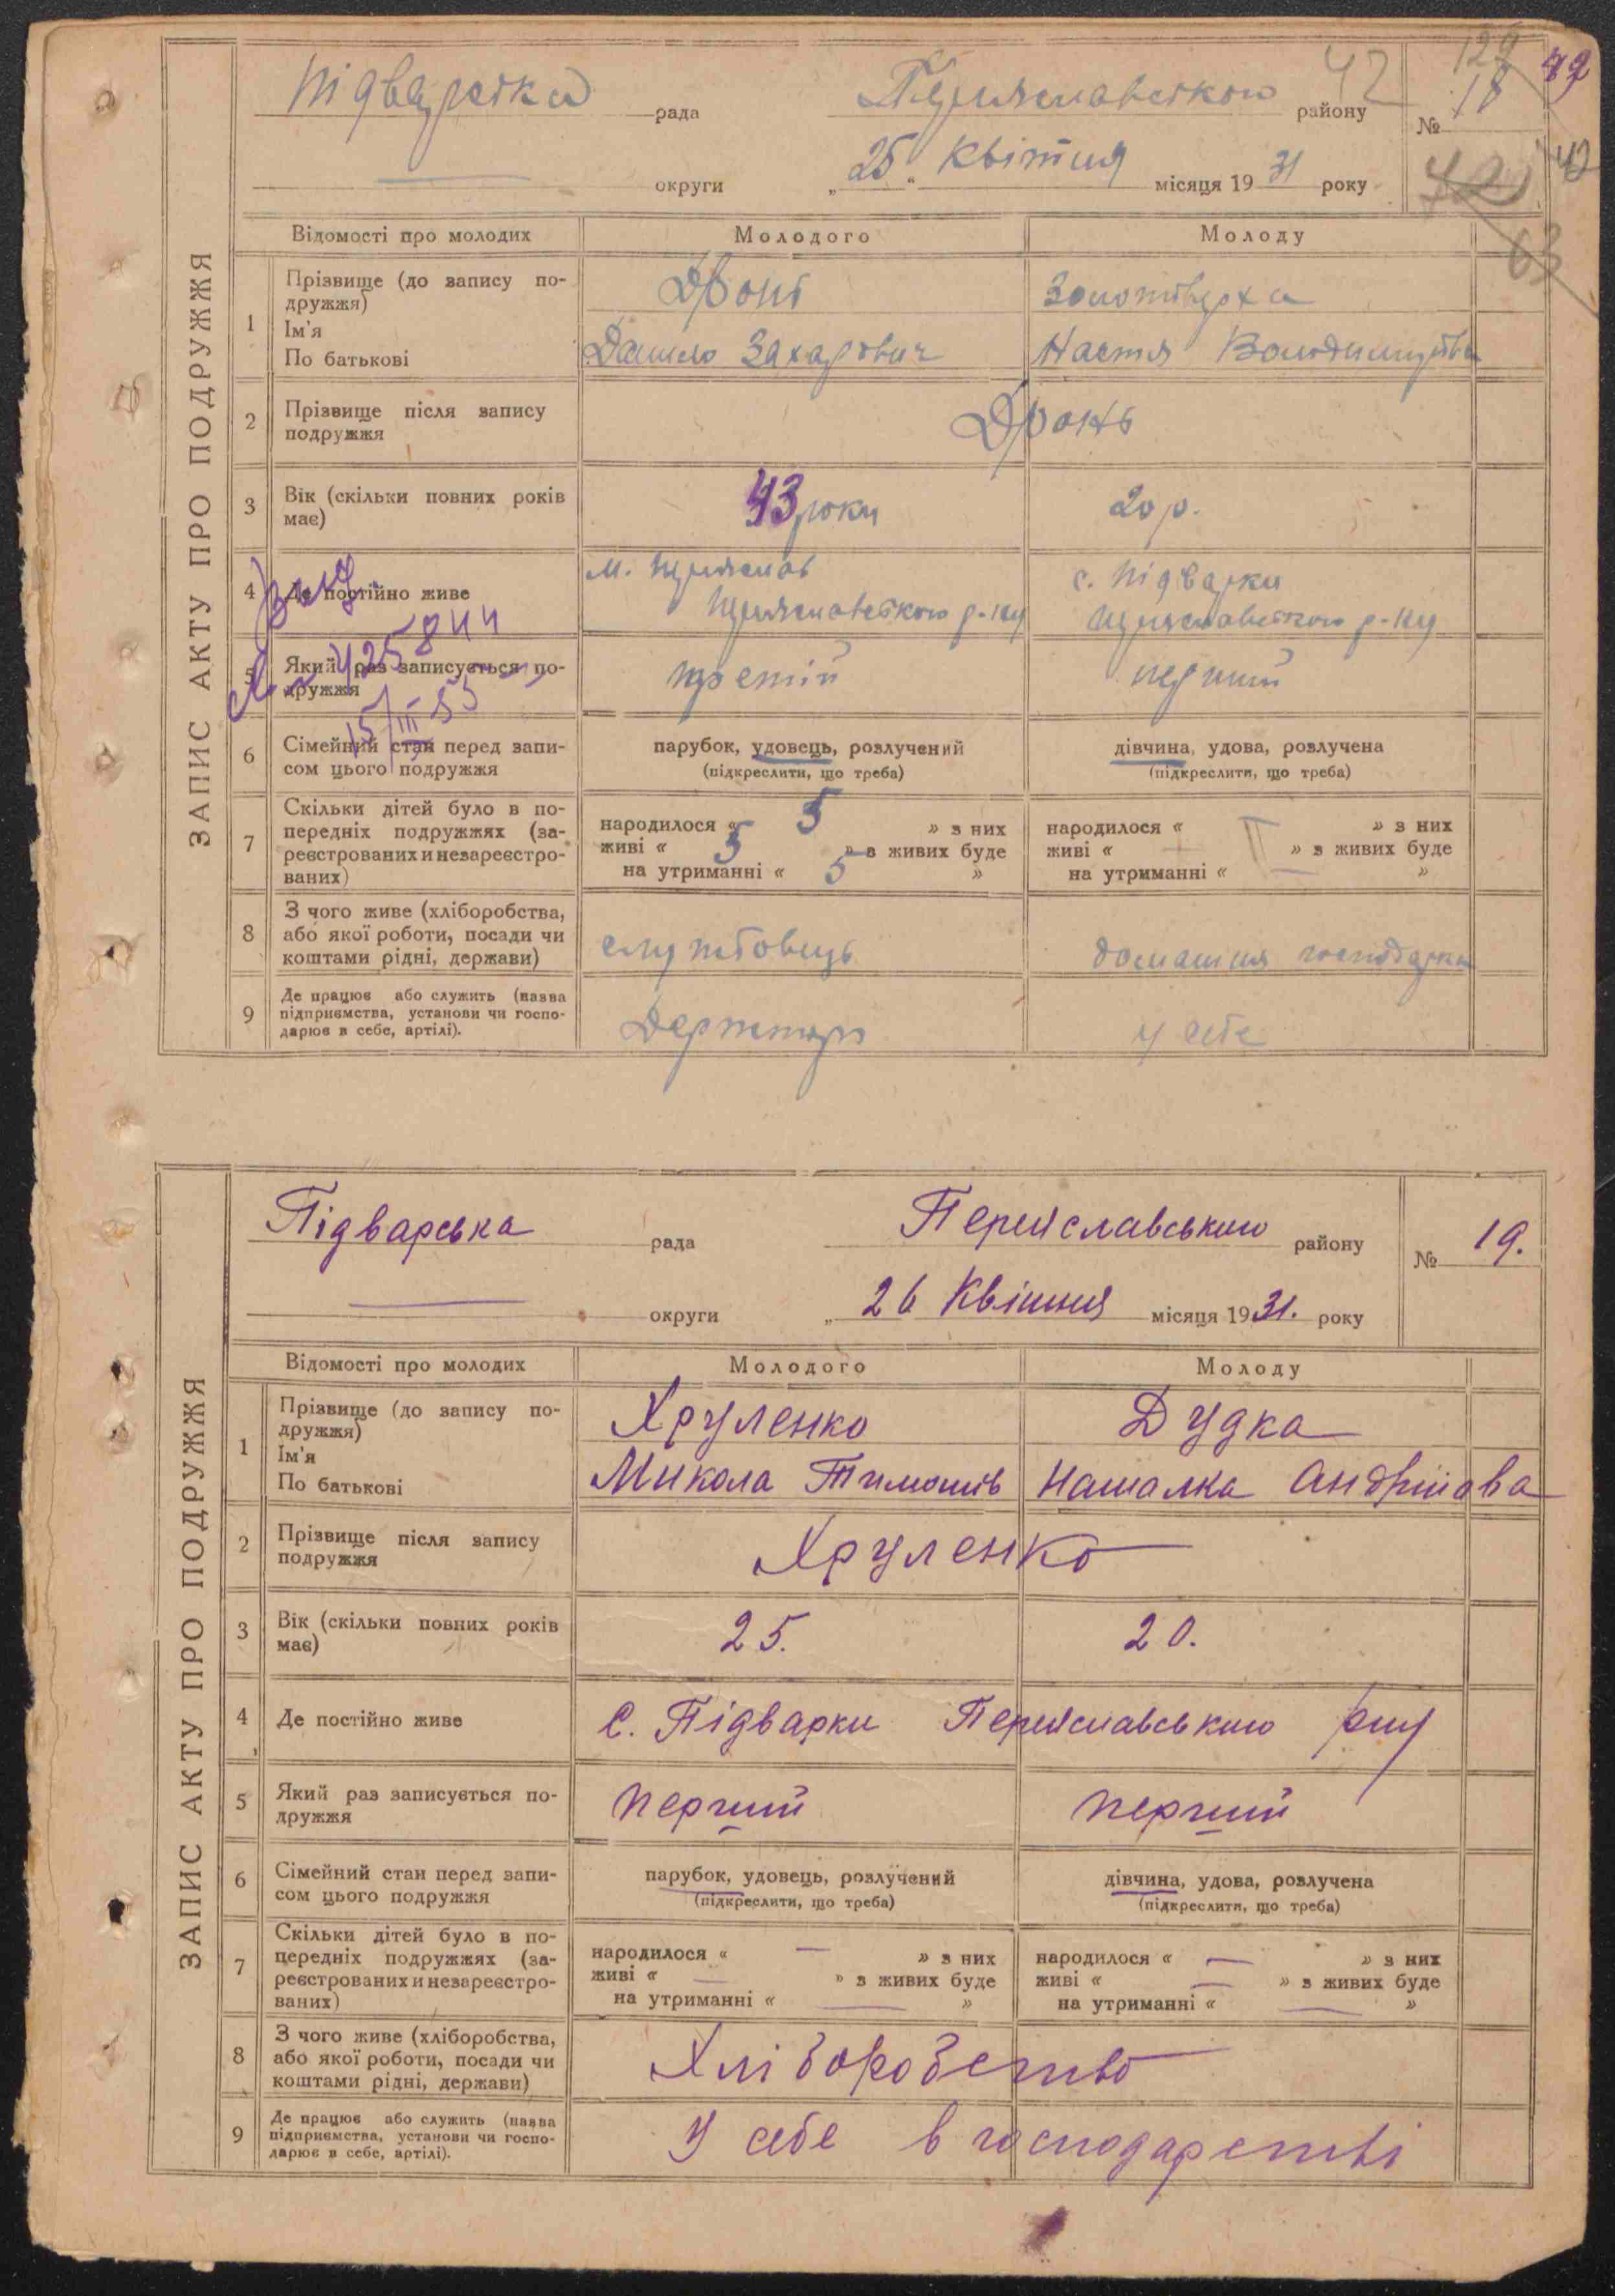 129 79
Підварська рада Переяславського району 42 № 18
42
округи „25“ Квітня місяця 1931 року
63
ЗАПИС АКТУ ПРО ПОДРУЖЖЯ
Відомості про молодих Молодого Молоду
1 Прізвище (до запису по-
дружжя)
Ім'я
По батькові
Дронь Золотоверха
Данило Захарович Настя Володимирівна
2 Прізвище після запису
подружжя
Дронь
3 Вік (скільки повних років
має)
43 роки 20 р.
4 Де постійно живе
м. Переяслав с. Підварки
Переяславського р-ну Переяславського р-ну
5 Який раз записується по-
дружжя
третій перший
15/III 55
6 Сімейний стан перед запи-
сом цього подружжя
парубок, удовець, розлучений дівчина, удова, розлучена
(підкреслити, що треба) (підкреслити, що треба)
7 Скільки дітей було в по-
передніх подружжях (за-
реєстрованих и незареєстро-
ваних)
народилося « 5 » з них народилося « » з них
живі « 5 » з живих буде живі « » з живих буде
на утриманні « 5 » на утриманні « — »
8 З чого живе (хліборобства,
або якої роботи, посади чи
коштами рідні, держави)
службовець домашня господарка
9 Де працює або служить (назва
підприємства, установи чи госпо-
дарює в себе, артілі).
у себе
Підварська рада Переяславського району № 19.
округи „ 26 Квітня місяця 1931. року
ЗАПИС АКТУ ПРО ПОДРУЖЖЯ
Відомості про молодих Молодого Молоду
1 Прізвище (до запису по-
дружжя)
Ім'я
По батькові
Хруленко Дудка
Микола Тимошів Наталка Андрійова
2 Прізвище після запису
подружжя
Хруленко
3 Вік (скільки повних років
має)
25. 20.
4 Де постійно живе
с. Підварки Переяславського р-ну
5 Який раз записується по-
дружжя
перший перший
6 Сімейний стан перед запи-
сом цього подружжя
парубок, удовець, розлучений дівчина, удова, розлучена
(підкреслити, що треба) (підкреслити, що треба)
7 Скільки дітей було в по-
передніх подружжях (за-
реєстрованих и незареєстро-
ваних)
народилося « — » з них народилося « — » з них
живі « — » з живих буде живі « — » з живих буде
на утриманні « — » на утриманні « — »
8 З чого живе (хліборобства,
або якої роботи, посади чи
коштами рідні, держави)
Хліборобство
9 Де працює або служить (назва
підприємства, установи чи госпо-
дарює в себе, артілі).
У себе в господарстві